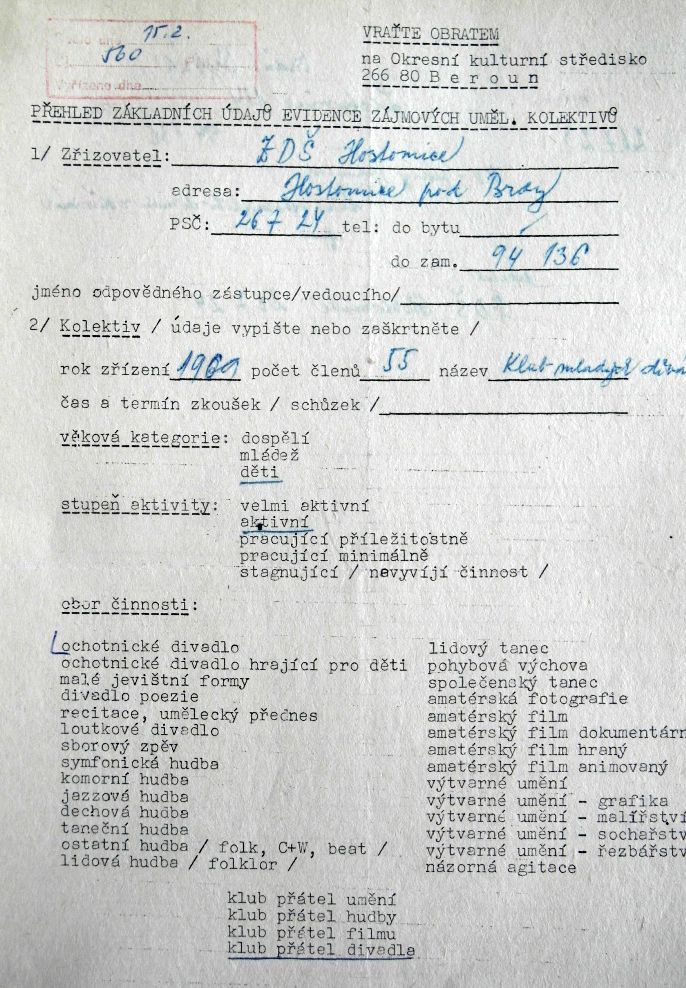 Došlo dne 15.2.
Č. 560
Vyřízeno dne
VRAŤTE OBRATEM
na Okresní kulturní středisko
266 80 Beroun
PŘEHLED ZÁKLADNÍCH ÚDAJŮ EVIDENCE ZÁJMOVÝCH UMĚL. KOLEKTIVŮ
1/ Zřizovatel: ZDŠ Hostomice
adresa: Hostomice pod Brdy
PSČ: 267 24 tel: do bytu
do zam. 94 136
jméno odpovědného zástupce/vedoucího/
2/ Kolektiv / údaje vypište nebo zaškrtněte /
rok zřízení 1960 počet členů 55 název Klub mladých divá
čas a termín zkoušek / schůzek /
věková kategorie: dospělí
mládež
děti
stupeň aktivity: velmi aktivní
aktivní
pracující příležitostně
pracující minimálně
stagnující / nevyvíjí činnost /
obor činnosti:
ochotnické divadlo
ochotnické divadlo hrající pro děti
malé jevištní formy
divadlo poezie
recitace, umělecký přednes
loutkové divadlo
sborový zpěv
symfonická hudba
komorní hudba
jazzová hudba
dechová hudba
taneční hudba
ostatní hudba / folk, C+W, beat /
lidová hudba / folklor /
lidový tanec
pohybová výchova
společenský tanec
amatérská fotografie
amatérský film
amatérský film dokumentárn
amatérský film hraný
amatérský film animovaný
výtvarné umění
výtvarné umění - grafika
výtvarné umění - malířství
výtvarné umění - sochařstv
výtvarné umění - řezbářstv
názorná agitace
klub přátel umění
klub přátel hudby
klub přátel filmu
klub přátel divadla